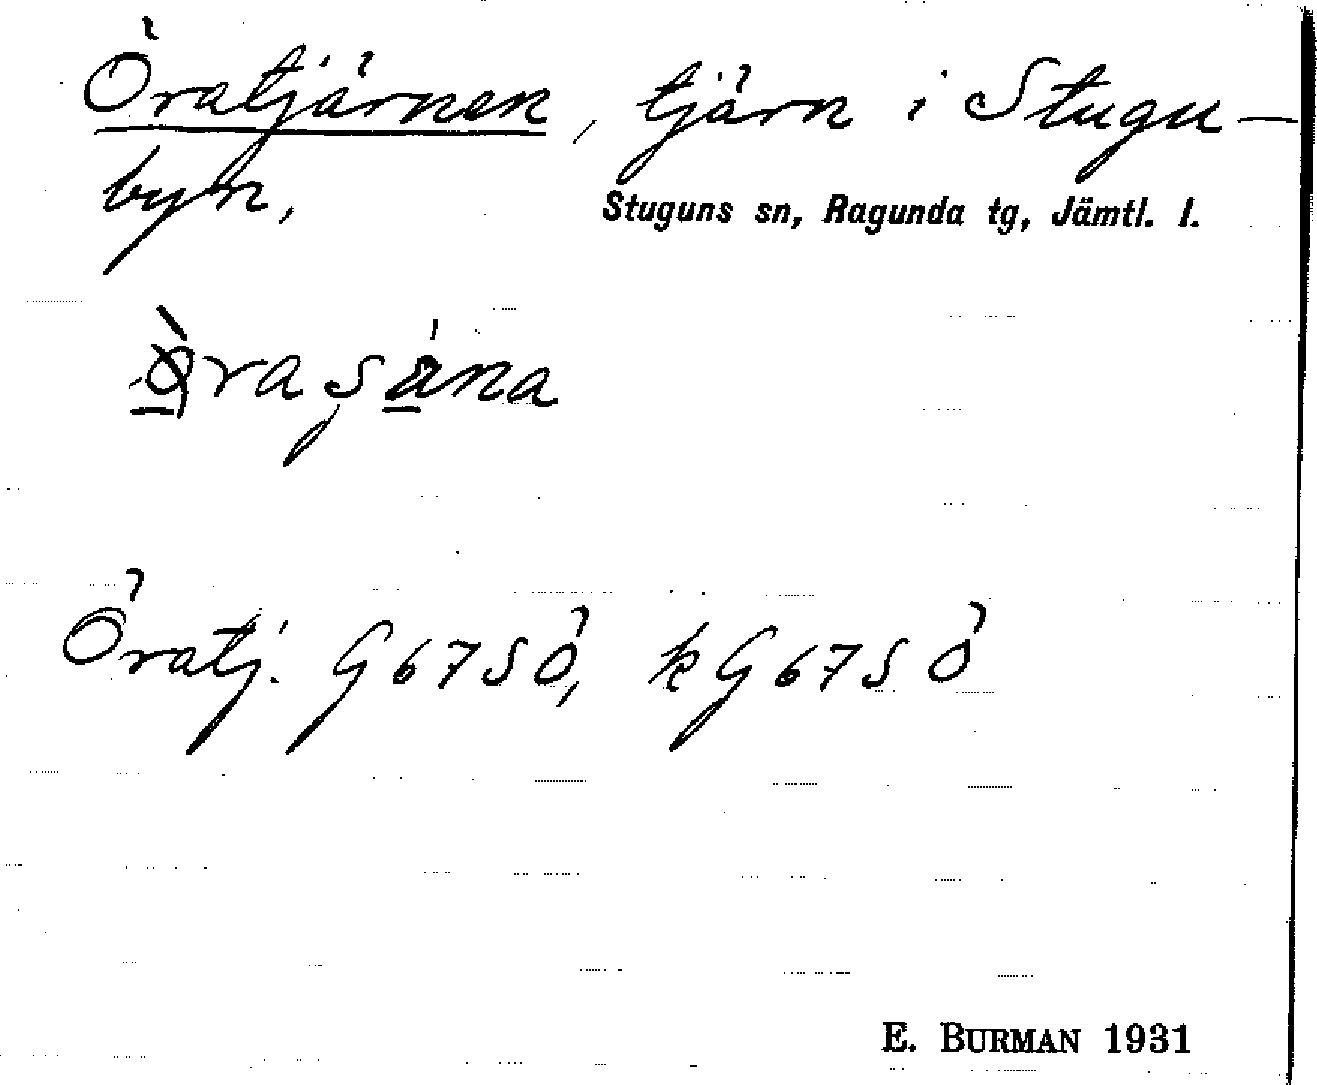 Öratjärnen, tjärn i Stugu-
byn,
Stuguns sn, Ragunda tg, Jämtl. l.
Öratj. G67SÖ, kG67SÖ
E. BURMAN 1931